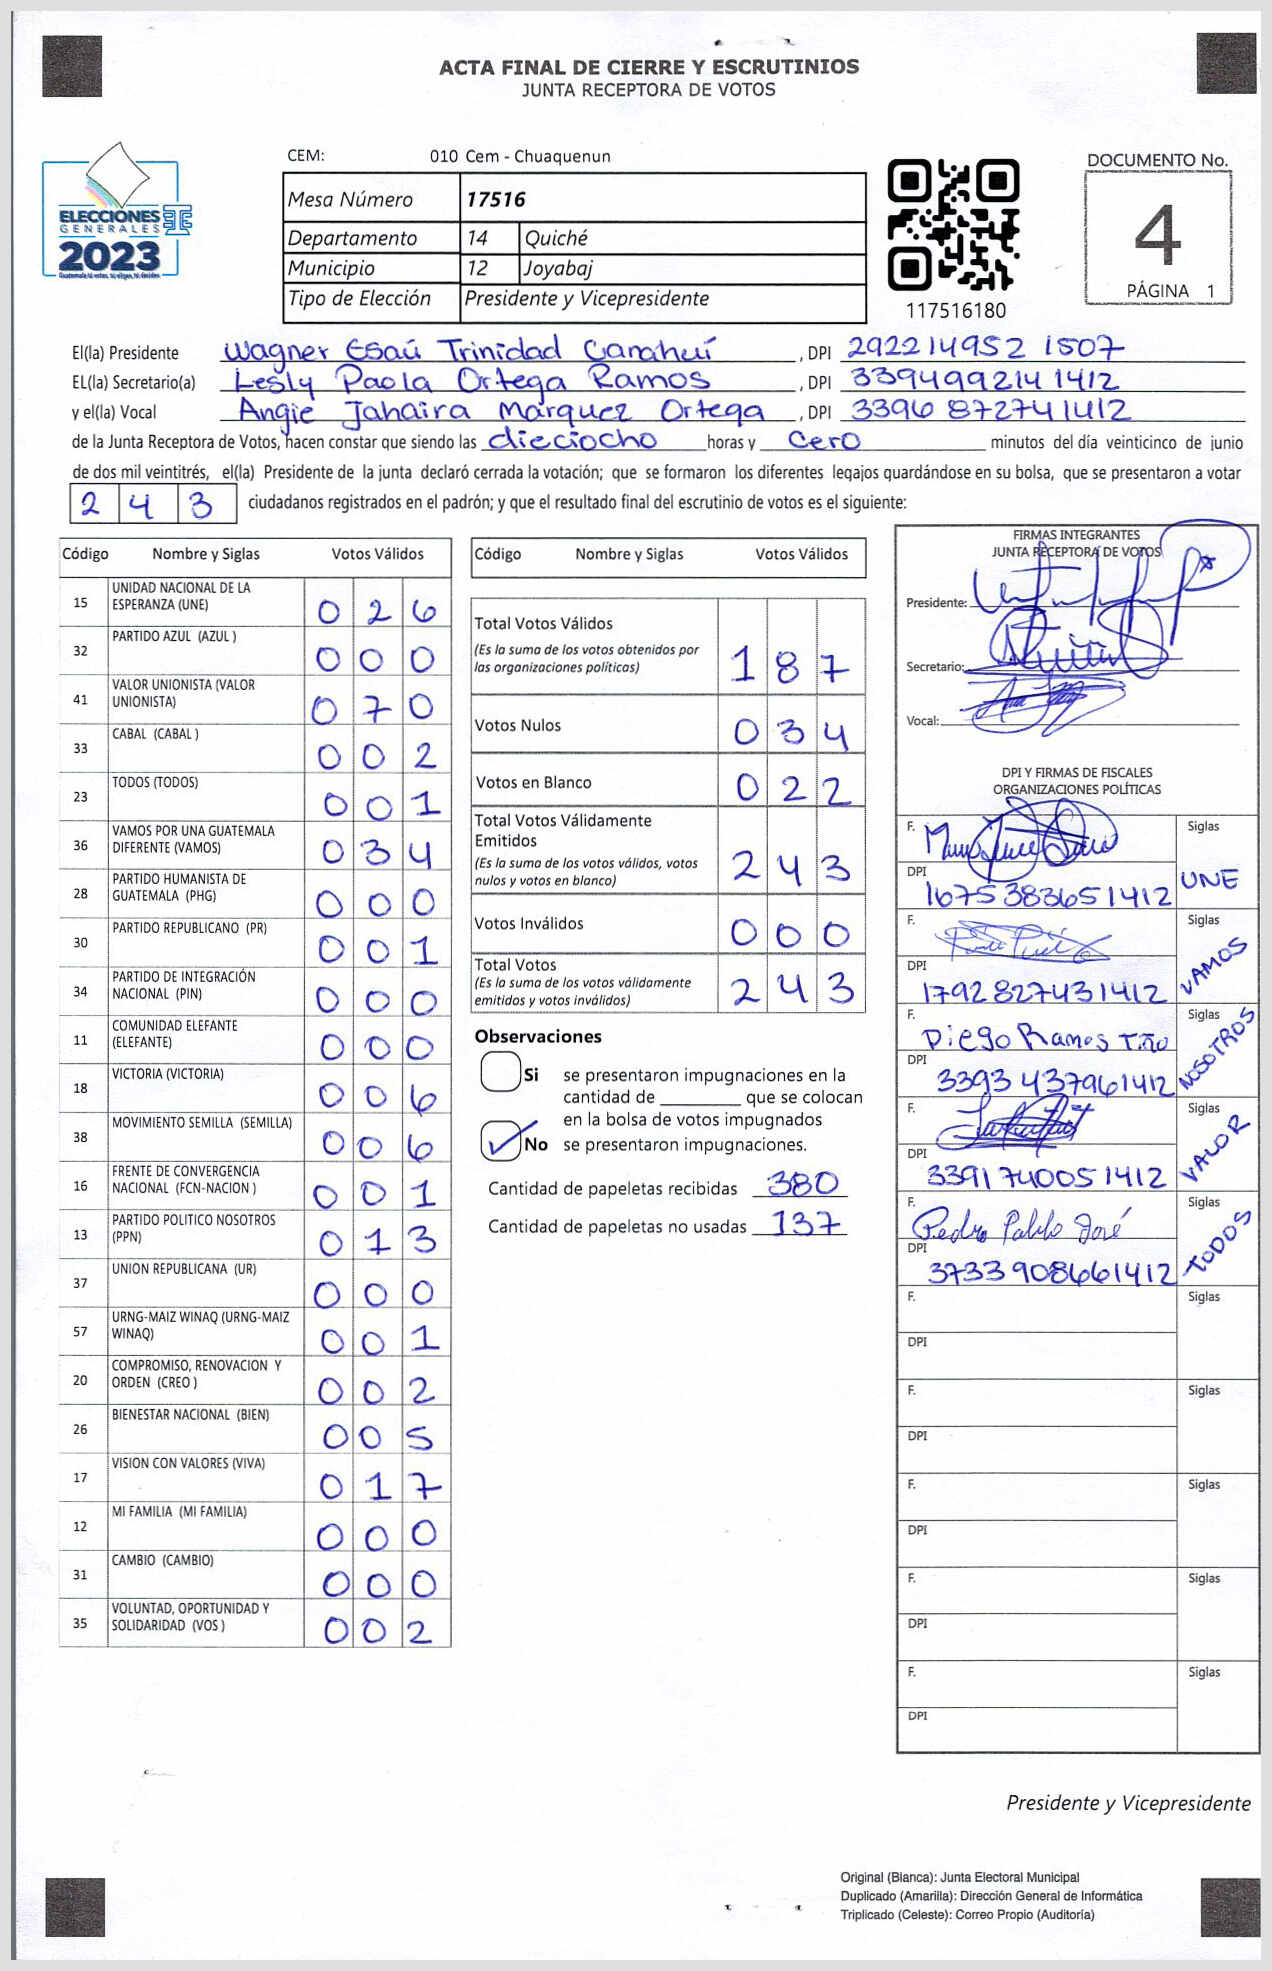 ACTA FINAL DE CIERRE Y ESCRUTINIOS
JUNTA RECEPTORA DE VOTOS
ELECCIONES
GENERALES
2023
CEM: 010 Cem - Chuaquenun
Mesa Número 17516
Departamento 14 Quiché
Municipio 12 Joyabaj
Tipo de Elección Presidente y Vicepresidente
117516180
DOCUMENTO No.
4
PÁGINA 1
El(la) Presidente Wagner Esaú Trinidad Canahuí , DPI 292214952 1507
EL(la) Secretario(a) Lesly Paola Ortega Ramos , DPI 3394992141412
y el(la) Vocal Angie Jahaira Márquez Ortega , DPI 3396872741412
de la Junta Receptora de Votos, hacen constar que siendo las dieciocho horas y cero minutos del día veinticinco de junio
de dos mil veintitrés, el(la) Presidente de la junta declaró cerrada la votación; que se formaron los diferentes legajos guardándose en su bolsa, que se presentaron a votar
243 ciudadanos registrados en el padrón; y que el resultado final del escrutinio de votos es el siguiente:
Código Nombre y Siglas Votos Válidos
15 UNIDAD NACIONAL DE LA ESPERANZA (UNE) 026
32 PARTIDO AZUL (AZUL ) 000
41 VALOR UNIONISTA (VALOR UNIONISTA) 070
33 CABAL (CABAL ) 002
23 TODOS (TODOS) 001
36 VAMOS POR UNA GUATEMALA DIFERENTE (VAMOS) 034
28 PARTIDO HUMANISTA DE GUATEMALA (PHG) 000
30 PARTIDO REPUBLICANO (PR) 001
34 PARTIDO DE INTEGRACIÓN NACIONAL (PIN) 000
11 COMUNIDAD ELEFANTE (ELEFANTE) 000
18 VICTORIA (VICTORIA) 006
38 MOVIMIENTO SEMILLA (SEMILLA) 006
16 FRENTE DE CONVERGENCIA NACIONAL (FCN-NACION ) 001
13 PARTIDO POLITICO NOSOTROS (PPN) 013
37 UNION REPUBLICANA (UR) 000
57 URNG-MAIZ WINAQ (URNG-MAIZ WINAQ) 001
20 COMPROMISO, RENOVACION Y ORDEN (CREO ) 002
26 BIENESTAR NACIONAL (BIEN) 005
17 VISION CON VALORES (VIVA) 017
12 MI FAMILIA (MI FAMILIA) 000
31 CAMBIO (CAMBIO) 000
35 VOLUNTAD, OPORTUNIDAD Y SOLIDARIDAD (VOS ) 002
Código Nombre y Siglas Votos Válidos
Total Votos Válidos 187
(Es la suma de los votos obtenidos por
las organizaciones políticas)
Votos Nulos 034
Votos en Blanco 022
Total Votos Válidamente
Emitidos 243
(Es la suma de los votos válidos, votos
nulos y votos en blanco)
Votos Inválidos 000
Total Votos 243
(Es la suma de los votos válidamente
emitidos y votos inválidos)
Observaciones
Si se presentaron impugnaciones en la
cantidad de ________ que se colocan
en la bolsa de votos impugnados
No se presentaron impugnaciones.
Cantidad de papeletas recibidas 380
Cantidad de papeletas no usadas 137
FIRMAS INTEGRANTES
JUNTA RECEPTORA DE VOTOS
Presidente:
Secretario:
Vocal:
DPI Y FIRMAS DE FISCALES
ORGANIZACIONES POLÍTICAS
F. Siglas
DPI 1675383651412 UNE
F. Siglas
DPI 1792827431412 VAMOS
F. Diego Ramos Tiño Siglas
DPI 3393437961412 NOSOTROS
F. Siglas
DPI 3391740051412 VALOR
F. Pedro Pablo José Siglas
DPI 3733908661412 TODOS
F. Siglas
DPI
F. Siglas
DPI
F. Siglas
DPI
F. Siglas
DPI
F. Siglas
DPI
Presidente y Vicepresidente
Original (Blanca): Junta Electoral Municipal
Duplicado (Amarilla): Dirección General de Informática
Triplicado (Celeste): Correo Propio (Auditoría)